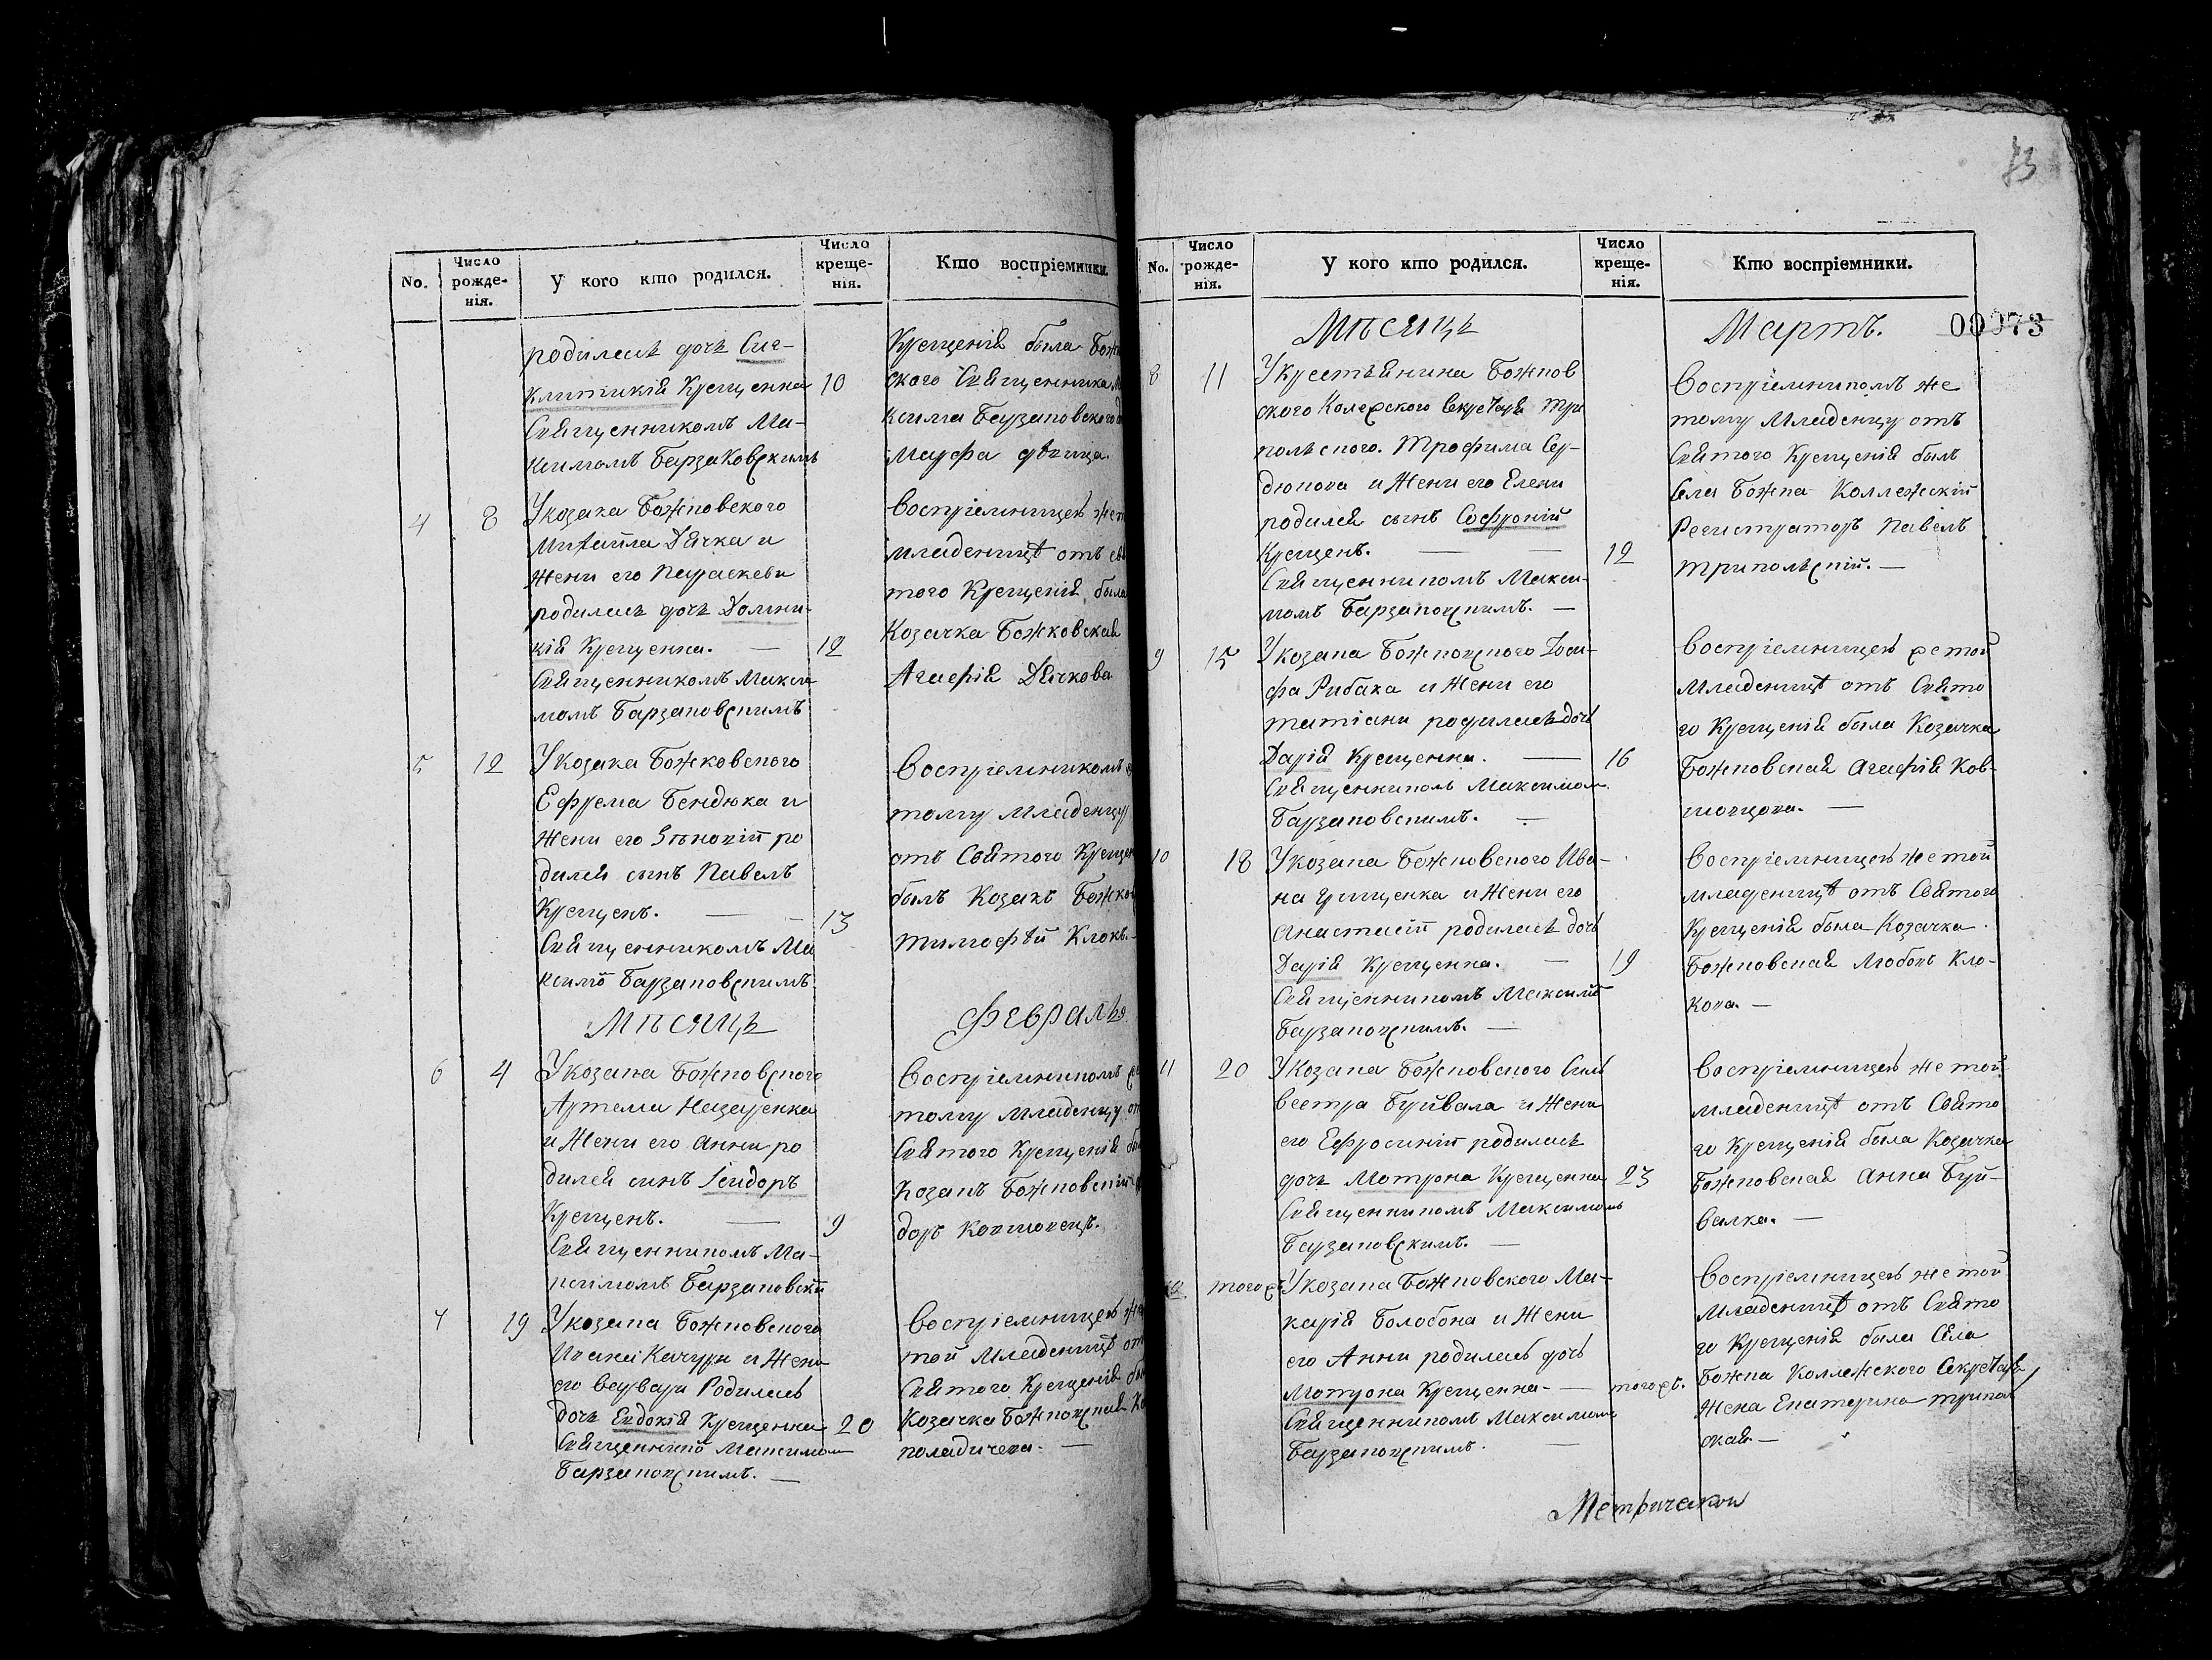 No.
Число рожде-нія.
У кого кто родился.
Число креще-нія.
Кто воспріемники.
родилась дочь Син-
клитикія Крещенна 10
Священникомъ Ма-
ксимомъ Барзаковскимъ
Крещенія была
ского Священника
ксима Барзаковского
Марфа дѣвица.
4 8 У козака Божковского
Михаила Дячка и
жени его Параскеви
родилась дочь Домни-
кія Крещенна. — 12
Священникомъ Макси
момъ Барзаковскимъ
Воспріемницею
младеницѣ отъ
того Крещенія была
Козачка Божковская
Агафія Дячкова
5 12 У козака Божковского
Ефрема Бендюка и
жени его Зѣновіи ро
дился сынъ Павелъ
Крещенъ. — 13
Священникомъ Ма
ксимо Барзаковскимъ
Воспріемникомъ
тому младенцу
отъ Святого
былъ Козакъ
Тимофѣй Клокъ. —
Мѣсяцъ
Февраль
6 4 У козака Божковского
Артема Назаренка
и жени его Анни ро
дился синъ Ісидоръ
Крещенъ. — 9
Священникомъ Ма-
ксимомъ Барзаковски
Воспріемникомъ
тому младенцу
Святого Крещенія
Козакъ
доръ Ковшовецъ.
7 19 У козака Божковского
Ивана Качури и жени
его Варвари Родилась
дочь Евдокія Крещенна 20
Священнико Максимом
Барзаковскимъ. —
Воспріемницею
той Младеницѣ
Святого Крещенія
Козачка Божковская
—
73
No.
Число рожде-нія.
У кого кто родился.
Число креще-нія.
Кто воспріемники.
Мѣсяцъ
Мартъ. 00073
8 11 У крестьянина Божков
ского Колежского Секретаря Три
польского. Трофима Сер-
дюкова и жени его Елени
родился сынъ Софроній
Крещенъ. — — 12
Священникомъ Макси-
момъ Барзаковскимъ. —
Воспріемникомъ же
тому младенцу отъ
Святого Крещенія былъ
Села Божка Коллежскій
Регистраторъ Павелъ
Трипольскій. —
9 15 У козака Божковского Іоси-
фа Рибака и жени его
Татіани родилась дочь
Дарія Крещенна. — 16
Священником Максимом
Барзаковскимъ. —
Воспріемницею же той
Младеницѣ отъ Свято
го Крещенія была Козачка
Божковская Агафія Ков-
шовцова. —
10 18 У козака Божковского Ива-
на Грищенка и жени его
Анастасіи родилась дочь
Дарія Крещенна. — 19
Священникомъ Максимо
Барзаковскимъ. —
Воспріемницею же той
младеницѣ отъ Святого
Крещенія была Козачка
Божковская Любовь Кло-
кова. —
11 20 У козака Божковского Силь
вестра Буйвала и жени
его Ефросиніи родилась
дочь Мотрона Крещенна 23
Священникомъ Максимомъ
Барзаковскимъ. —
Воспріемницею же той
младеницѣ отъ Свято
го Крещенія была Козачка
Божковская Анна Буй-
валка. —
12 того жъ У козака Божковского Ма-
карія Болобона и жени
его Анни родилась дочь
Мотрона Крещенна. — того жъ.
Священникомъ Максимомъ
Барзаковскимъ. —
Воспріемницею же той
Младеницѣ отъ Свято
го Крещенія была Села
Божка Коллежского Секретаря
жена Екатерина Триполь
ская. —
Метрической